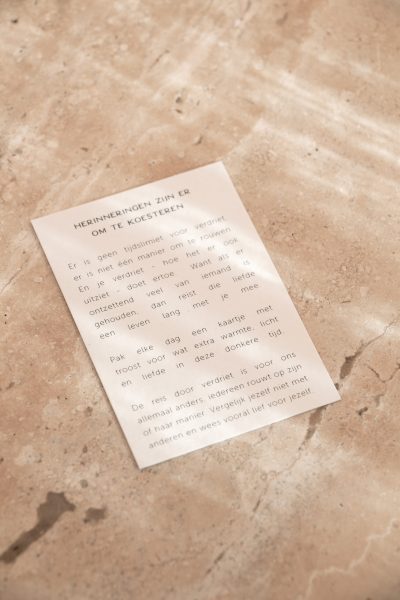 HERINNERINGEN ZIJN ER
OM TE KOESTEREN
Er is geen tijdslimiet voor verdriet,
er is niet één manier om te rouwen
En je verdriet - hoe het er ook
uitziet - doet ertoe. Want als er
ontzettend veel van iemand is
gehouden, dan reist die liefde
een leven lang met je mee
Pak elke dag een kaartje met
troost voor wat extra warmte, licht
en liefde in deze donkere tijd.
De reis door verdriet is voor ons
allemaal anders, iedereen rouwt op zijn
of haar manier. Vergelijk jezelf niet met
anderen en wees vooral lief voor jezelf.